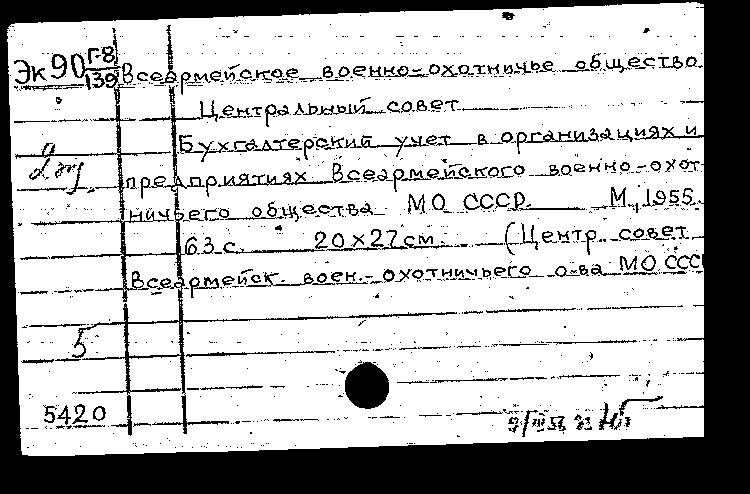 Эк 90 Г-8/139 Всеармейское военно-охотничье общество
Центральный совет
Бухгалтерский учет в организациях и
2 эк.
предприятиях Всеармейского военно-охот-
ничьего общества МО СССР. М, 1955.
63 с. 20×27 см. (Центр. совет
Всеармейск. воен.-охотничьего о-ва МО СССР
5
5420